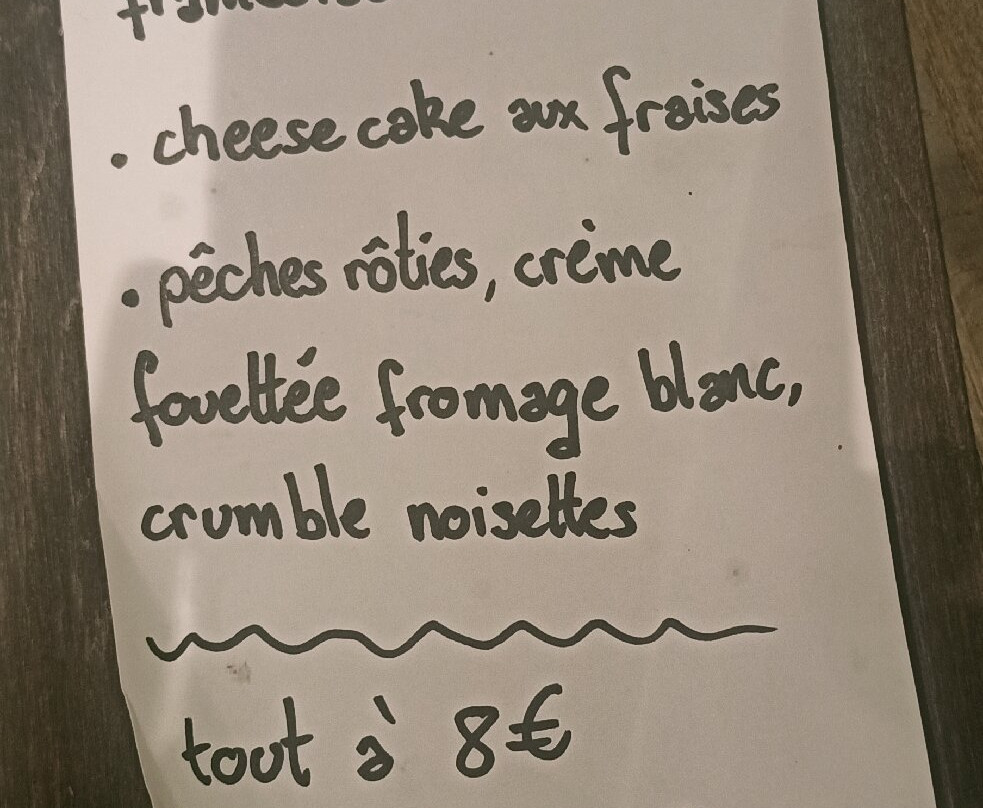 • cheese cake aux fraises
• pêches rôties, crème
fouettée fromage blanc,
crumble noisettes
tout à 8€